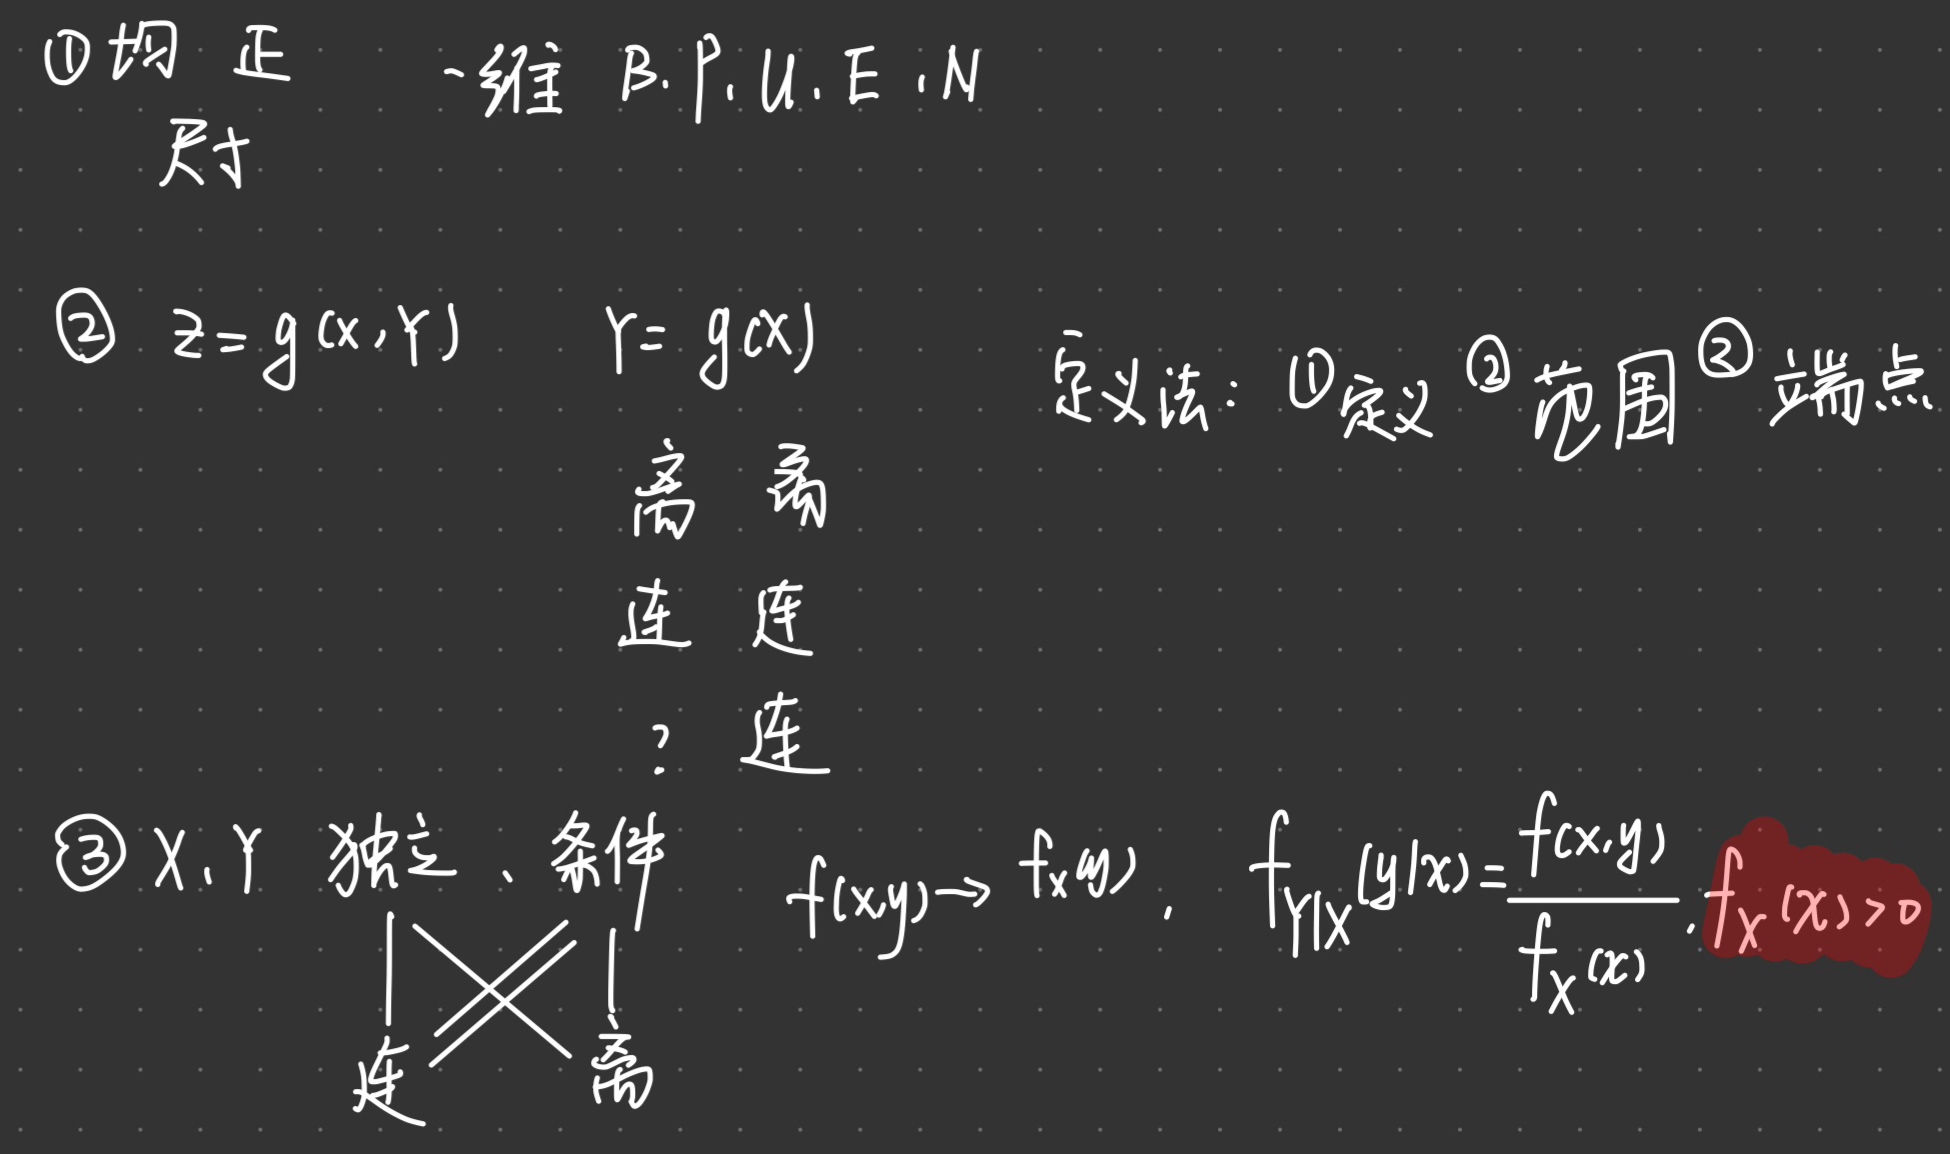 ① 均 正 一维 B. P. U. E. N
尺寸
② Z=g(X,Y) Y=g(X) 定义法: ①定义 ②范围 ③端点
离 离
连 连
? 连
③ X、Y 独立、条件 f(x,y)→f_X(y), f_{Y|X}(y|x)=f(x,y)/f_X(x), f_X(x)>0
连 离